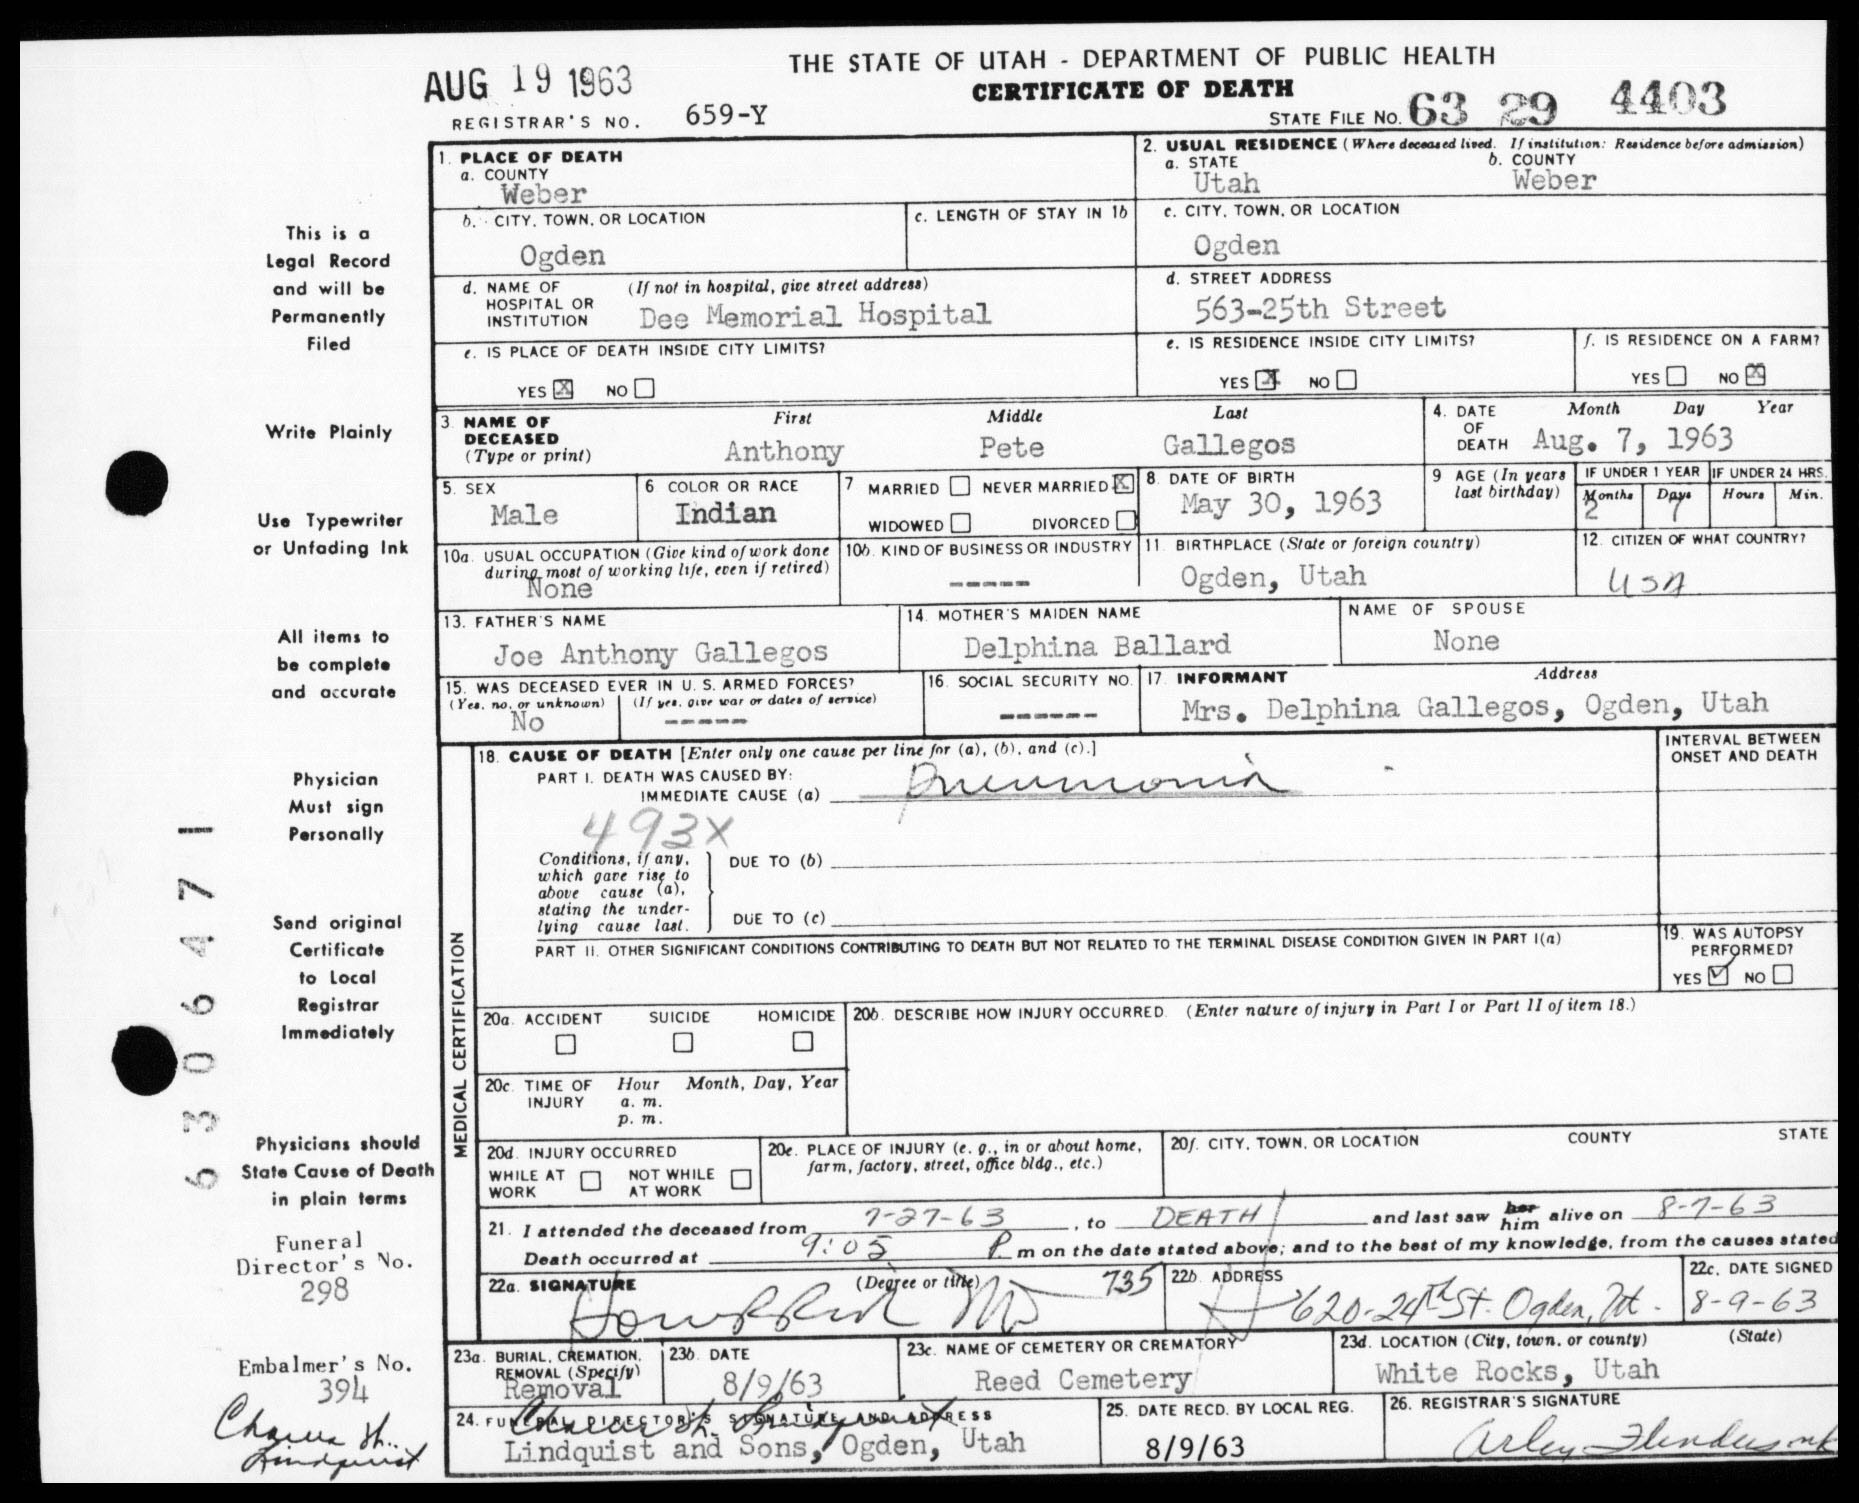 THE STATE OF UTAH - DEPARTMENT OF PUBLIC HEALTH
AUG 19 1963
CERTIFICATE OF DEATH
REGISTRAR'S NO. 659-Y
STATE FILE NO. 63 29 4403
1. PLACE OF DEATH
a. COUNTY
Weber
2. USUAL RESIDENCE (Where deceased lived. If institution: Residence before admission)
a. STATE b. COUNTY
Utah Weber
b. CITY, TOWN, OR LOCATION
Ogden
c. LENGTH OF STAY IN 1b
c. CITY, TOWN, OR LOCATION
Ogden
d. NAME OF HOSPITAL OR INSTITUTION (If not in hospital, give street address)
Dee Memorial Hospital
d. STREET ADDRESS
563-25th Street
e. IS PLACE OF DEATH INSIDE CITY LIMITS?
YES X NO
e. IS RESIDENCE INSIDE CITY LIMITS?
YES X NO
f. IS RESIDENCE ON A FARM?
YES NO X
3. NAME OF DECEASED (Type or print)
First Middle Last
Anthony Pete Gallegos
4. DATE OF DEATH Month Day Year
Aug. 7, 1963
5. SEX
Male
6 COLOR OR RACE
Indian
7 MARRIED NEVER MARRIED X
WIDOWED DIVORCED
8. DATE OF BIRTH
May 30, 1963
9 AGE (In years last birthday)
IF UNDER 1 YEAR IF UNDER 24 HRS.
Months Days Hours Min.
2 7
10a. USUAL OCCUPATION (Give kind of work done during most of working life, even if retired)
None
10b. KIND OF BUSINESS OR INDUSTRY
-----
11. BIRTHPLACE (State or foreign country)
Ogden, Utah
12. CITIZEN OF WHAT COUNTRY?
USA
13. FATHER'S NAME
Joe Anthony Gallegos
14. MOTHER'S MAIDEN NAME
Delphina Ballard
NAME OF SPOUSE
None
15. WAS DECEASED EVER IN U. S. ARMED FORCES?
(Yes, no, or unknown) (If yes, give war or dates of service)
No -----
16. SOCIAL SECURITY NO.
------
17. INFORMANT Address
Mrs. Delphina Gallegos, Ogden, Utah
MEDICAL CERTIFICATION
18. CAUSE OF DEATH [Enter only one cause per line for (a), (b), and (c).]
INTERVAL BETWEEN ONSET AND DEATH
PART I. DEATH WAS CAUSED BY:
IMMEDIATE CAUSE (a) Pneumonia
493X
Conditions, if any, which gave rise to above cause (a), stating the underlying cause last.
DUE TO (b)
DUE TO (c)
PART II. OTHER SIGNIFICANT CONDITIONS CONTRIBUTING TO DEATH BUT NOT RELATED TO THE TERMINAL DISEASE CONDITION GIVEN IN PART I(a)
19. WAS AUTOPSY PERFORMED?
YES ✓ NO
20a. ACCIDENT SUICIDE HOMICIDE
20b. DESCRIBE HOW INJURY OCCURRED. (Enter nature of injury in Part I or Part II of item 18.)
20c. TIME OF INJURY Hour Month, Day, Year
a. m.
p. m.
20d. INJURY OCCURRED
WHILE AT WORK NOT WHILE AT WORK
20e. PLACE OF INJURY (e. g., in or about home, farm, factory, street, office bldg., etc.)
20f. CITY, TOWN, OR LOCATION COUNTY STATE
21. I attended the deceased from 7-27-63, to DEATH and last saw her him alive on 8-7-63
Death occurred at 9:05 P m on the date stated above; and to the best of my knowledge, from the causes stated
22a. SIGNATURE (Degree or title) 735
22b. ADDRESS
620-24th St. Ogden, Ut.
22c. DATE SIGNED
8-9-63
23a. BURIAL, CREMATION, REMOVAL (Specify)
Removal
23b. DATE
8/9/63
23c. NAME OF CEMETERY OR CREMATORY
Reed Cemetery
23d. LOCATION (City, town, or county) (State)
White Rocks, Utah
24. FUNERAL DIRECTOR'S SIGNATURE AND ADDRESS
Lindquist and Sons, Ogden, Utah
25. DATE RECD. BY LOCAL REG.
8/9/63
26. REGISTRAR'S SIGNATURE
This is a
Legal Record
and will be
Permanently
Filed
Write Plainly
Use Typewriter
or Unfading Ink
All items to
be complete
and accurate
Physician
Must sign
Personally
Send original
Certificate
to Local
Registrar
Immediately
Physicians should
State Cause of Death
in plain terms
Funeral
Director's No.
298
Embalmer's No.
394
6306471